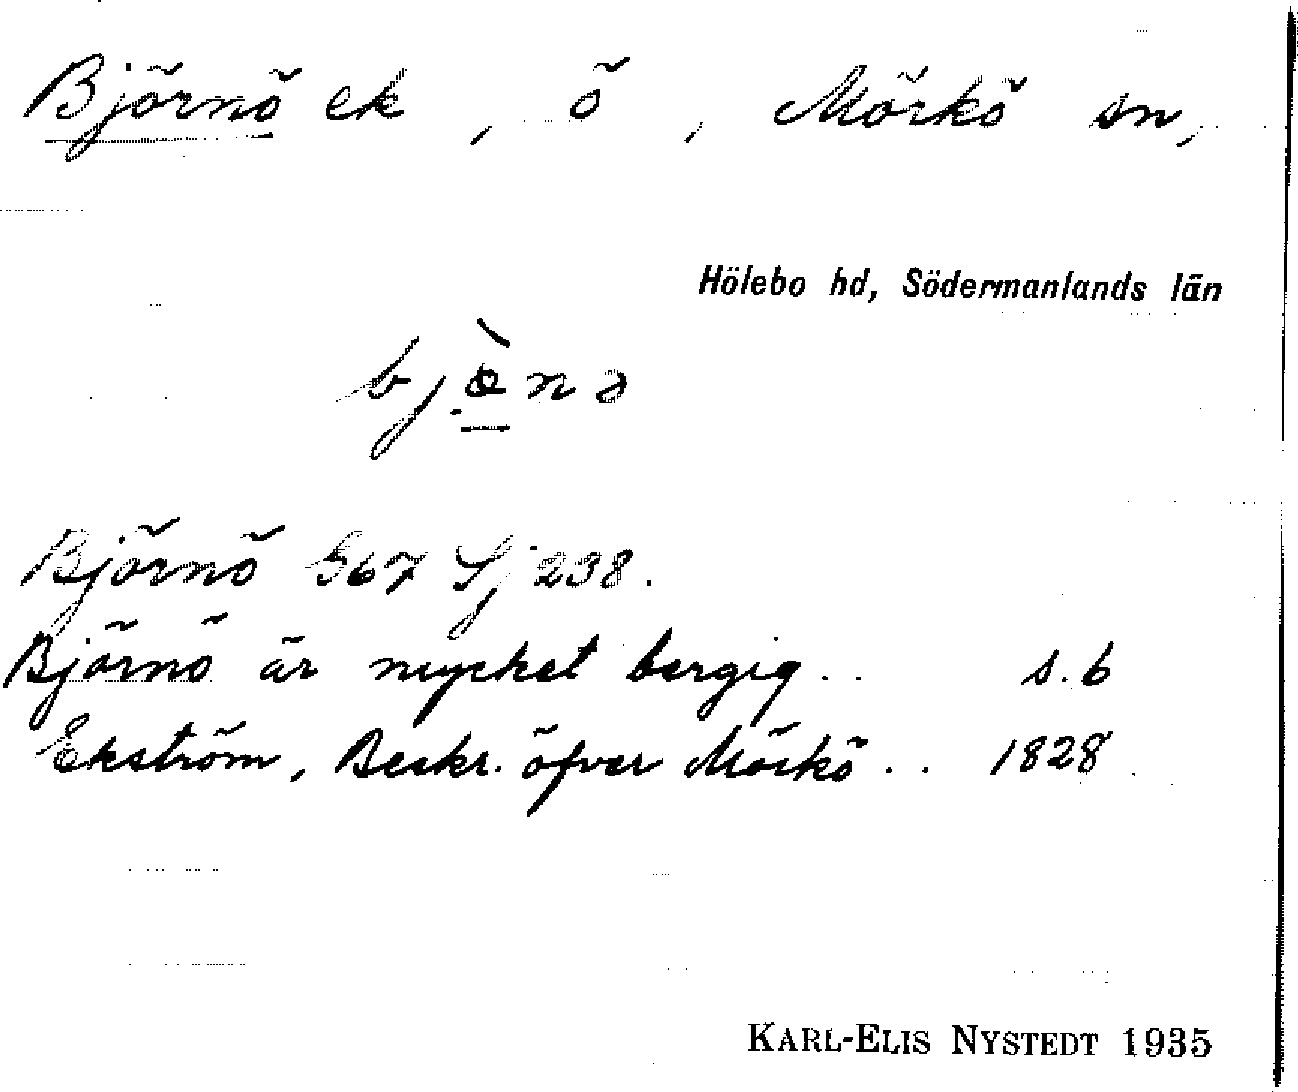 Björnö ek, ö, Mörkö sn,
Hölebo hd, Södermanlands län
Björnö G67 Sj 238.
Björnö är mycket bergig.. s. 6
Ekström, Beskr. öfver Mörkö.. 1828.
KARL-ELIS NYSTEDT 1935